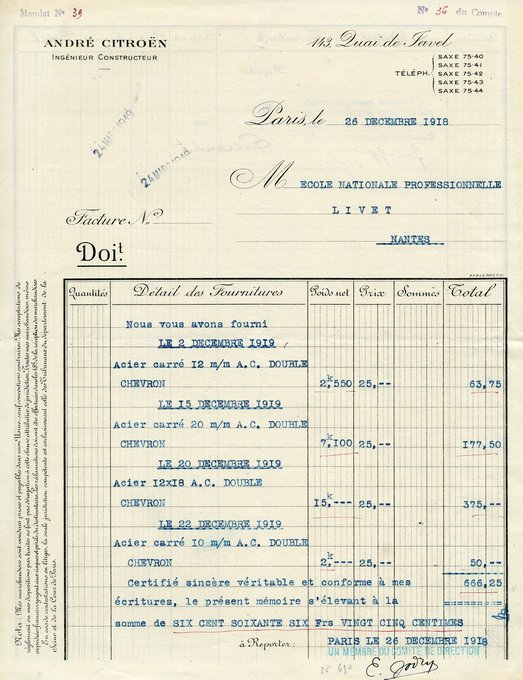 Mandat Nº 39
Nº 36 du Compte
ANDRÉ CITROËN
INGÉNIEUR CONSTRUCTEUR
143, Quai de Javel
TÉLÉPH. SAXE 75-40
SAXE 75-41
SAXE 75-42
SAXE 75-43
SAXE 75-44
24 MARS 1919
24 MARS 1919
Paris, le 26 DECEMBRE 1918
M ECOLE NATIONALE PROFESSIONNELLE
LIVET
NANTES
Facture Nº
Doit
Quantités Détail des Fournitures Poids net Prix Sommes Total
Nous vous avons fourni
LE 2 DECEMBRE 1919
Acier carré 12 m/m A.C. DOUBLE
CHEVRON 2,k550 25,-- 63,75
LE 15 DECEMBRE 1919
Acier carré 20 m/m A.C. DOUBLE
CHEVRON 7,k100 25,-- 177,50
LE 20 DECEMBRE 1919
Acier 12x18 A.C. DOUBLE
CHEVRON 15,k--- 25,-- 375,--
LE 22 DECEMBRE 1919
Acier carré 10 m/m A.C. DOUBLE
CHEVRON 2,k--- 25,-- 50,--
Certifié sincère véritable et conforme à mes 666,25
écritures, le présent mémoire s'élevant à la
somme de SIX CENT SOIXANTE SIX Frs VINGT CINQ CENTIMES
à Reporter: PARIS LE 26 DECEMBRE 1918
UN MEMBRE DU COMITE DE DIRECTION